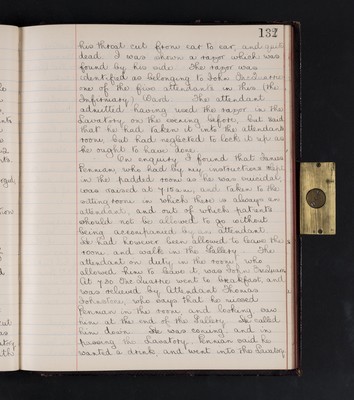 132
his throat cut from ear to ear, and quite
dead. I was shown a razor which was
found by his side. The razor was
identified as belonging to John
one of the five attendants in this (the
Infirmary) Ward. The attendant
admitted having used the razor in the
Lavatory, on the evening before, but said
that he had taken it into the attendants
room, but had neglected to lock it up as
he ought to have done.
On enquiry I found that James
Penman, who had by my instructions slept
in the padded room as he was suicidal,
was raised at 7.15 a.m. and taken to the
sitting room in which there is always an
attendant, and out of which patients
should not be allowed to go without
being accompanied by an attendant.
He had however been allowed to leave the
room and walk in the Gallery. The
attendant on duty in the room, who
allowed him to leave it, was John
At 7.30 went to breakfast, and
was relieved by Attendant Thomas
Johnstone, who says that he missed
Penman in the room and looking saw
him at the end of the Gallery. He called
him down. He was coming, and in
passing the Lavatory, Penman said he
wanted a drink, and went into the Lavatory